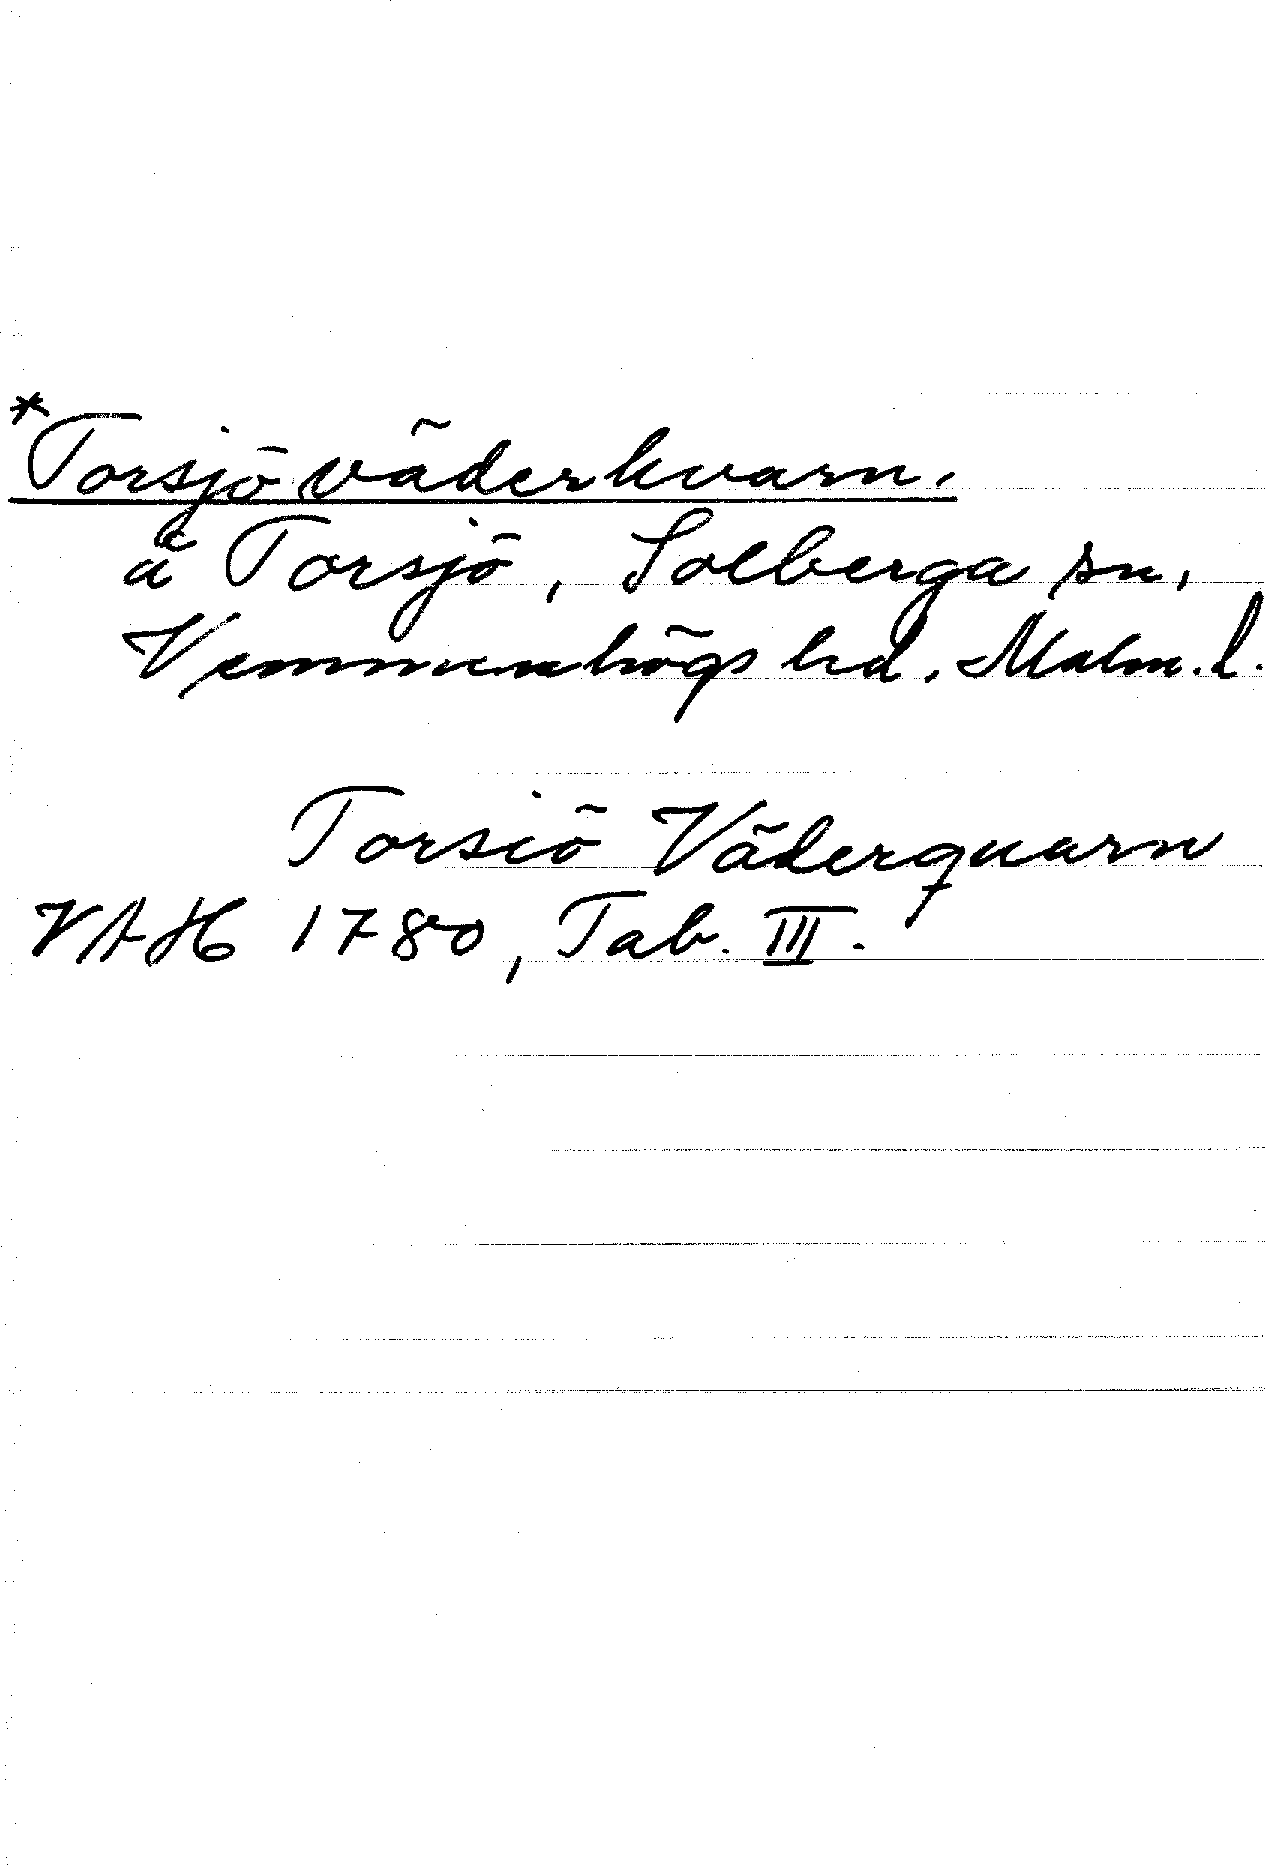 *Torsjö väderkvarn.
å Torsjö, Solberga sn,
Vemmenhögs hd. Malm. l.
Torsiö Väderquarn
VAH 1780, Tab. III.